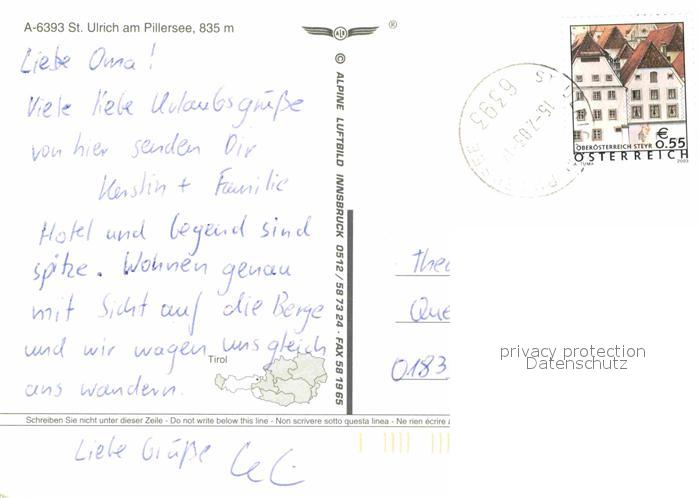 A-6393 St. Ulrich am Pillersee, 835 m
Liebe Oma!
Viele liebe Urlaubsgrüße
von hier senden Dir
Kerstin + Familie
Hotel und Gegend sind
spitze. Wohnen genau
mit Sicht auf die Berge
und wir wagen uns gleich
ans wandern.
Tirol
Schreiben Sie nicht unter dieser Zeile - Do not write below this line - Non scrivere sotto questa linea - Ne rien écrire
Liebe Grüße
© ALPINE LUFTBILD INNSBRUCK 0512/58 73 24 · FAX 58 19 65
®
6393
€
0.55
OBERÖSTERREICH STEYR
ÖSTERREICH
A. TUMA 2003
The
Que
0183
privacy protection
Datenschutz